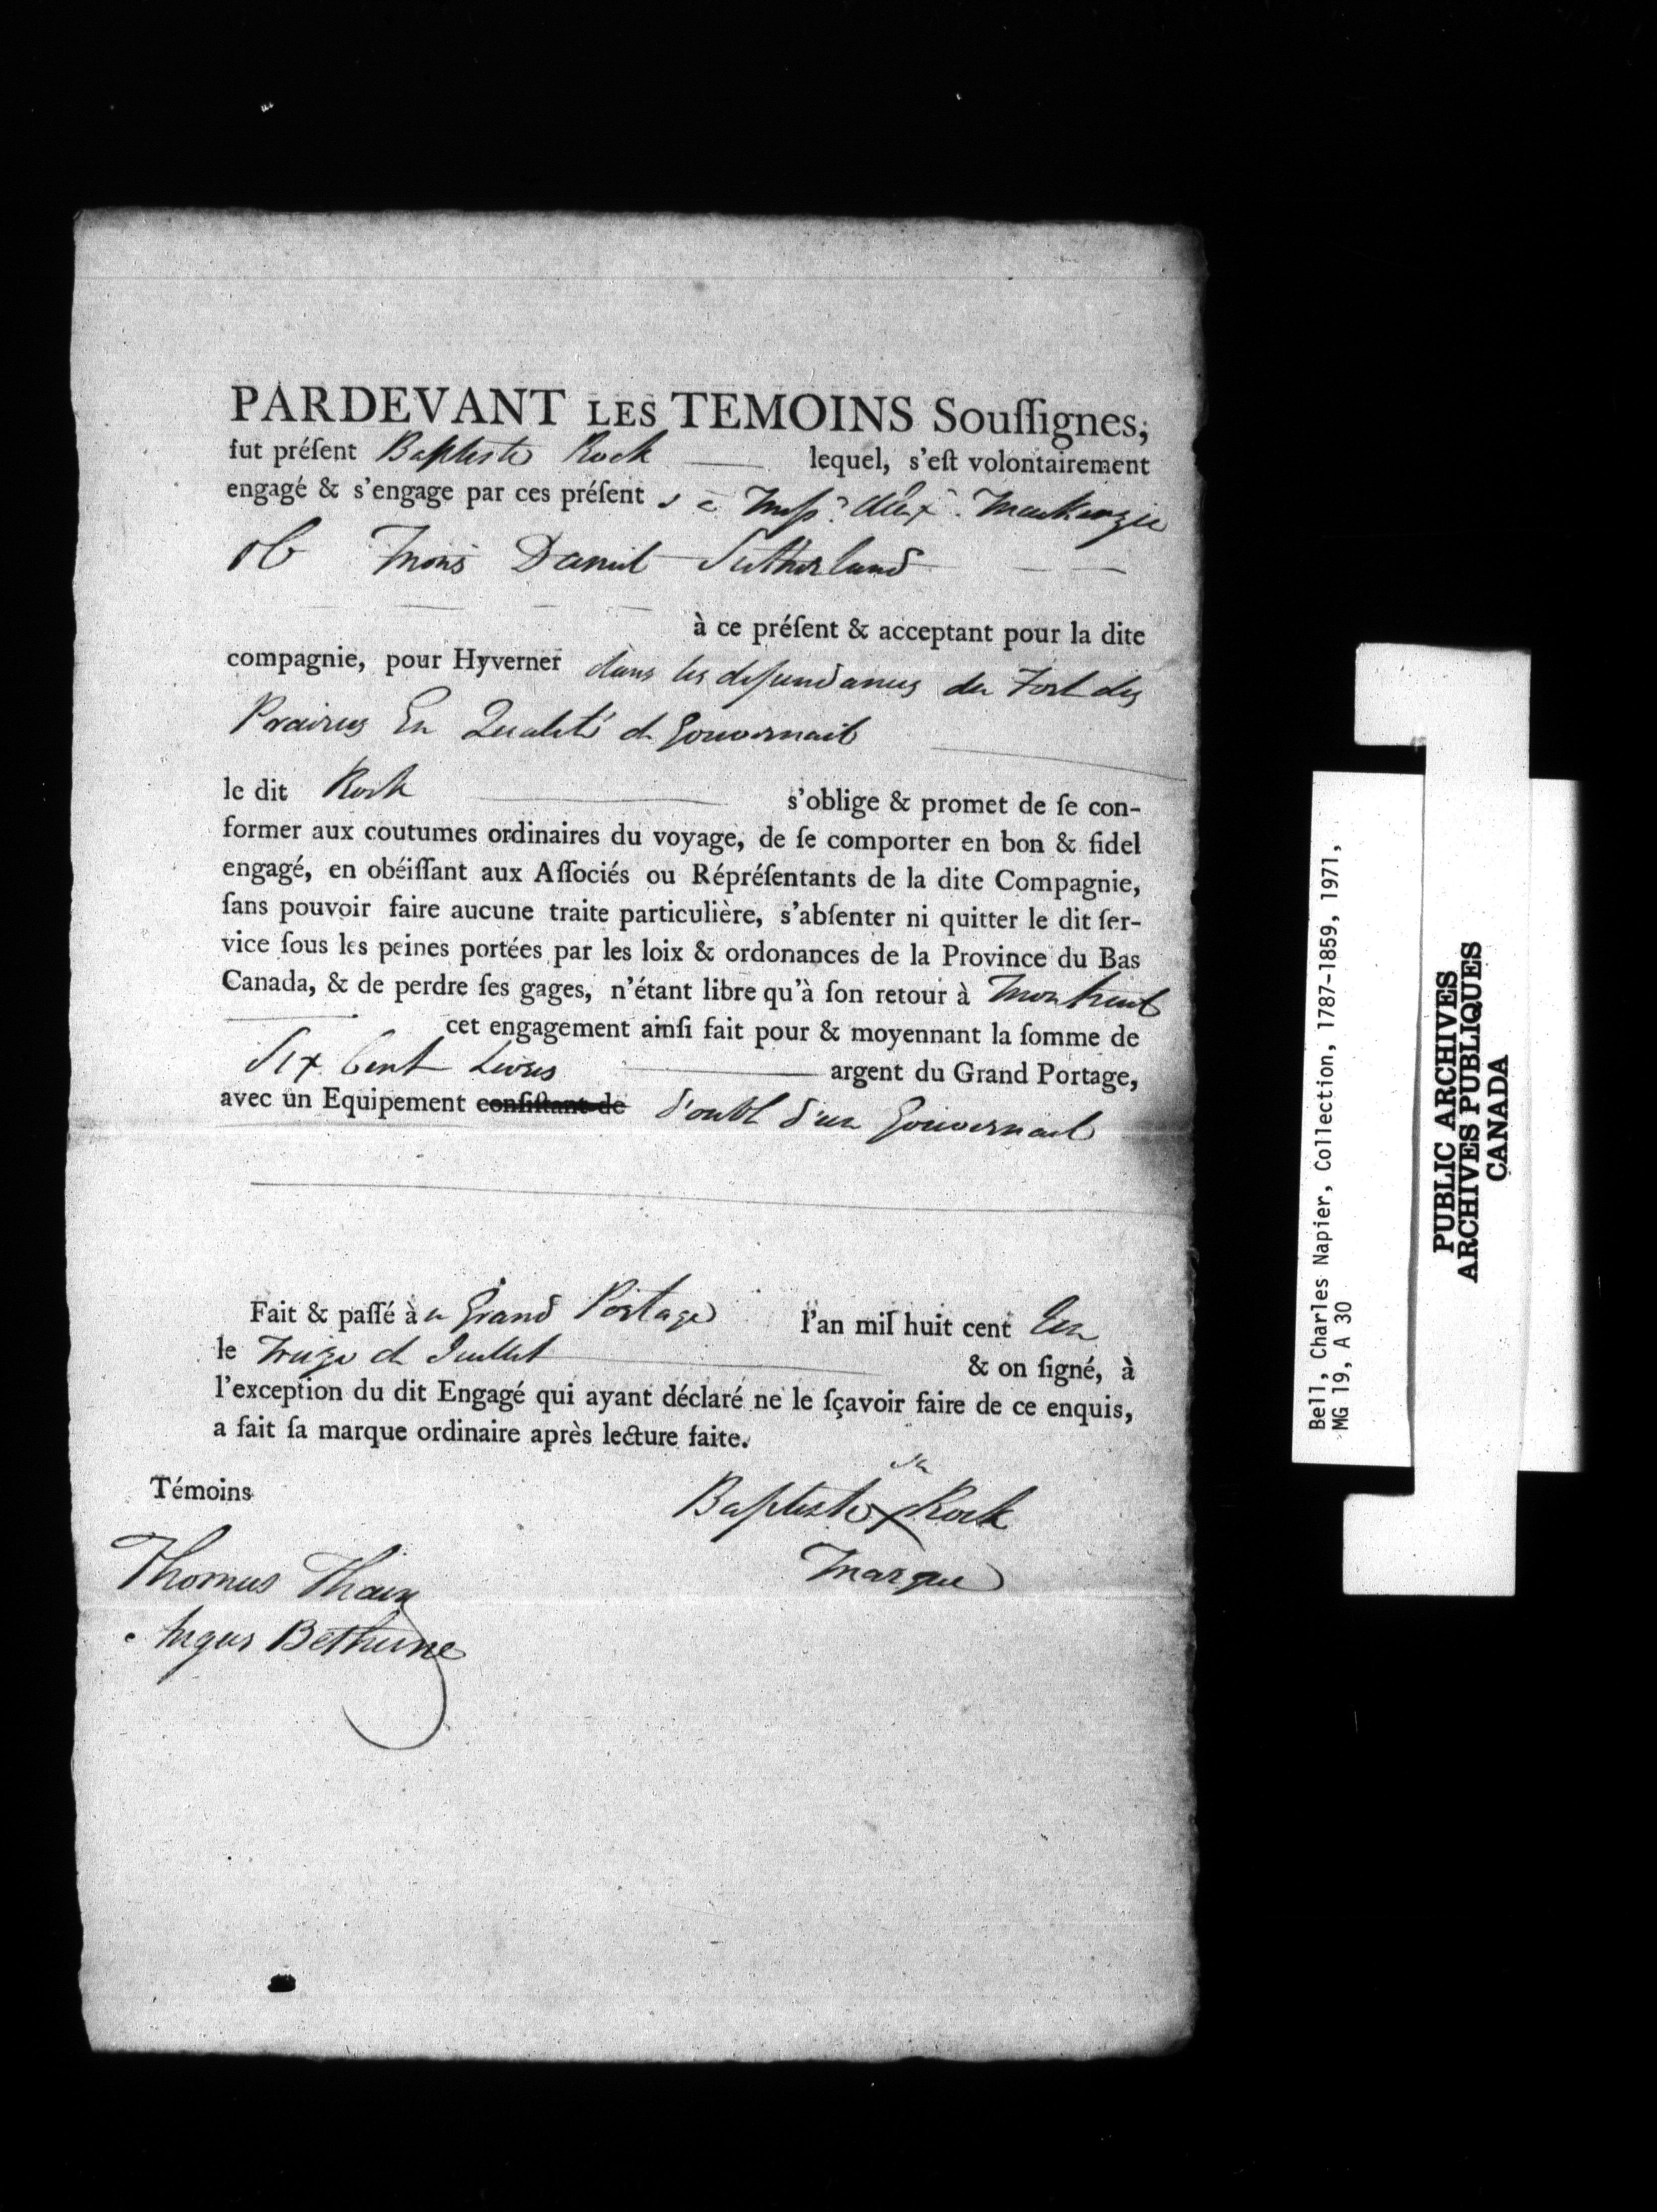 PARDEVANT LES TEMOINS Souſſignes,
fut préſent Baptiste Rock lequel, s'eſt volontairement
engagé & s'engage par ces préſent s à Mess.rs Alex.r MacKenzie
& Mons Daniel Sutherland
à ce préſent & acceptant pour la dite
compagnie, pour Hyverner dans les dependances du Fort des
Prairies En Qualité de Gouvernail
le dit Rock s'oblige & promet de ſe con-
former aux coutumes ordinaires du voyage, de ſe comporter en bon & fidel
engagé, en obéiſſant aux Aſſociés ou Répréſentants de la dite Compagnie,
ſans pouvoir faire aucune traite particulière, s'abſenter ni quitter le dit ſer-
vice ſous les peines portées par les loix & ordonances de la Province du Bas
Canada, & de perdre ſes gages, n'étant libre qu'à ſon retour à Montreal
cet engagement ainſi fait pour & moyennant la ſomme de
Six Cent Livres argent du Grand Portage,
avec un Equipement conſiſtant de d'oubl d'un Gouvernail
Fait & paſſé à u Grand Portage l'an miſ huit cent Un
le Treize de Juillet & on ſigné, à
l'exception du dit Engagé qui ayant déclaré ne le ſçavoir faire de ce enquis,
a fait ſa marque ordinaire après lecture faite.
Témoins
sa
Baptiste X Rock
marque
Thomas Thain
Angus Bethune
Bell, Charles Napier, Collection, 1787-1859, 1971,
MG 19, A 30
PUBLIC ARCHIVES
ARCHIVES PUBLIQUES
CANADA